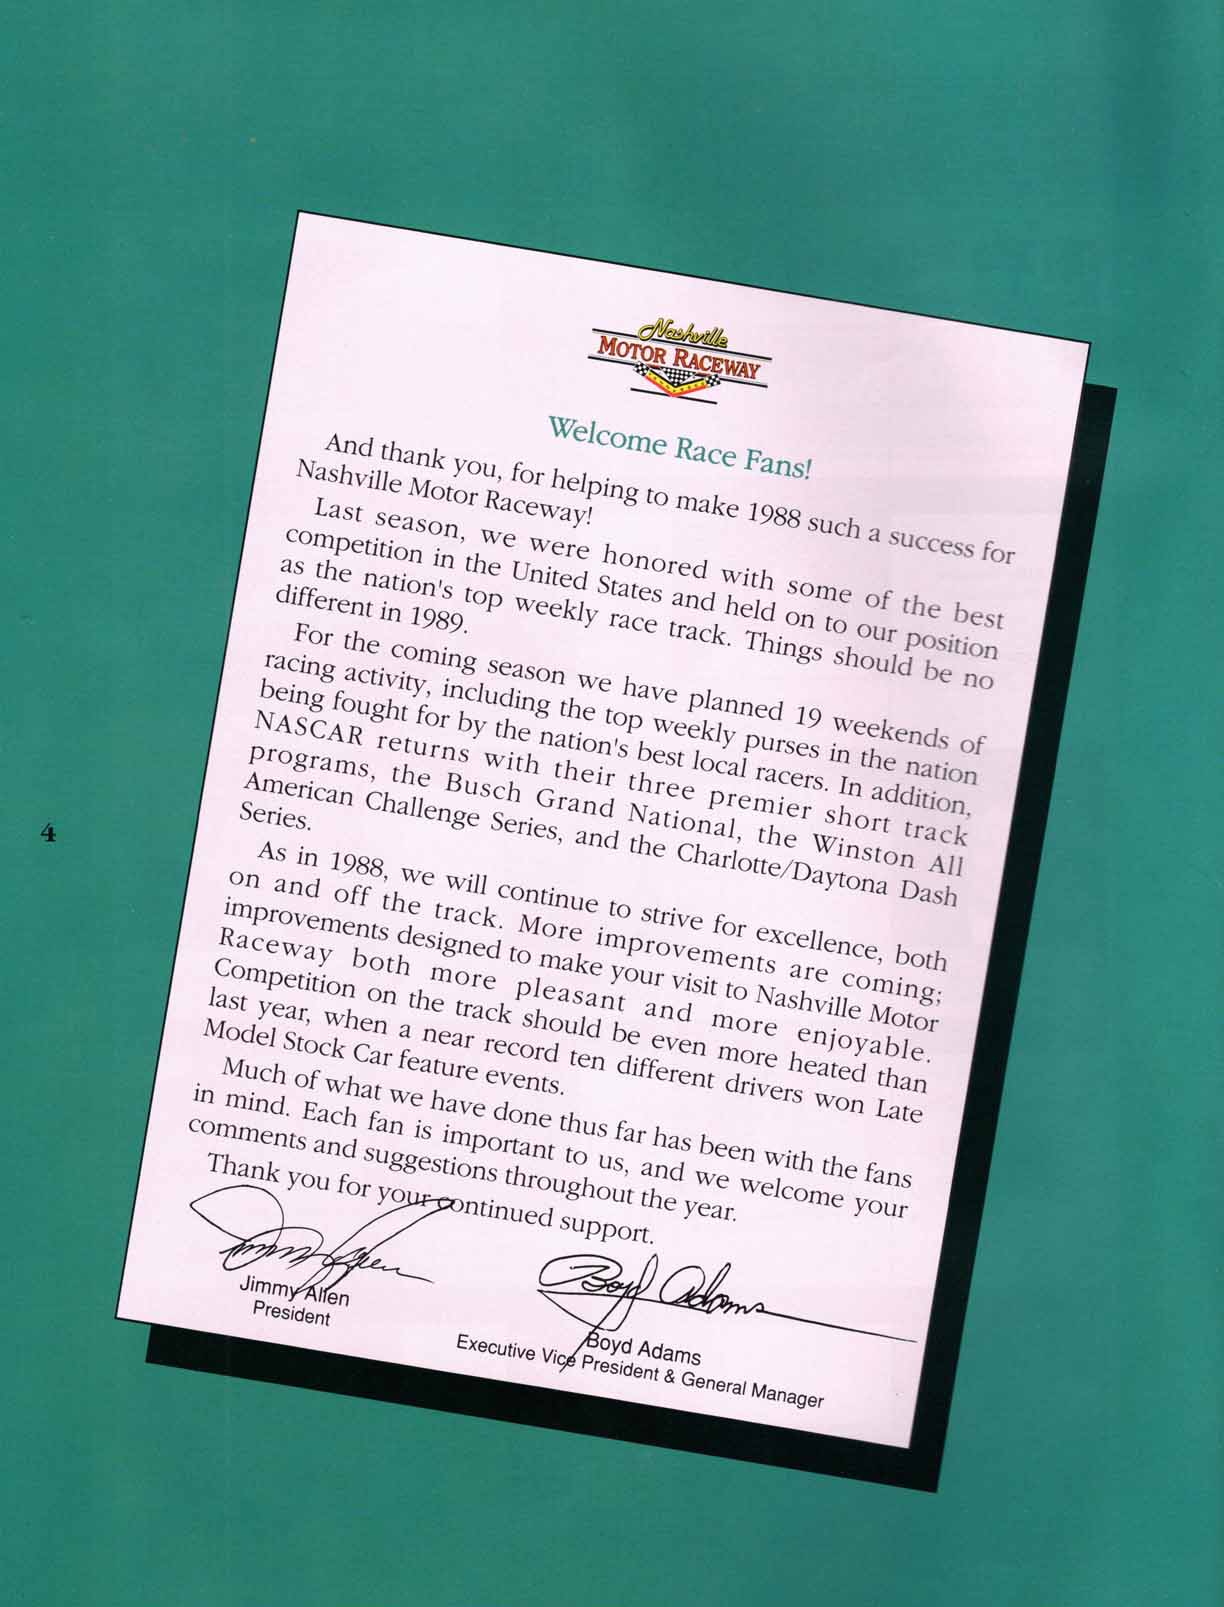 Nashville
MOTOR RACEWAY
Welcome Race Fans!
And thank you, for helping to make 1988 such a success for
Nashville Motor Raceway!
Last season, we were honored with some of the best
competition in the United States and held on to our position
as the nation's top weekly race track. Things should be no
different in 1989.
For the coming season we have planned 19 weekends of
racing activity, including the top weekly purses in the nation
being fought for by the nation's best local racers. In addition,
NASCAR returns with their three premier short track
programs, the Busch Grand National, the Winston All
American Challenge Series, and the Charlotte/Daytona Dash
Series.
As in 1988, we will continue to strive for excellence, both
on and off the track. More improvements are coming;
improvements designed to make your visit to Nashville Motor
Raceway both more pleasant and more enjoyable.
Competition on the track should be even more heated than
last year, when a near record ten different drivers won Late
Model Stock Car feature events.
Much of what we have done thus far has been with the fans
in mind. Each fan is important to us, and we welcome your
comments and suggestions throughout the year.
Thank you for your continued support.
Jimmy Allen
Jimmy Allen
President
Boyd Adams
Boyd Adams
Executive Vice President & General Manager
4